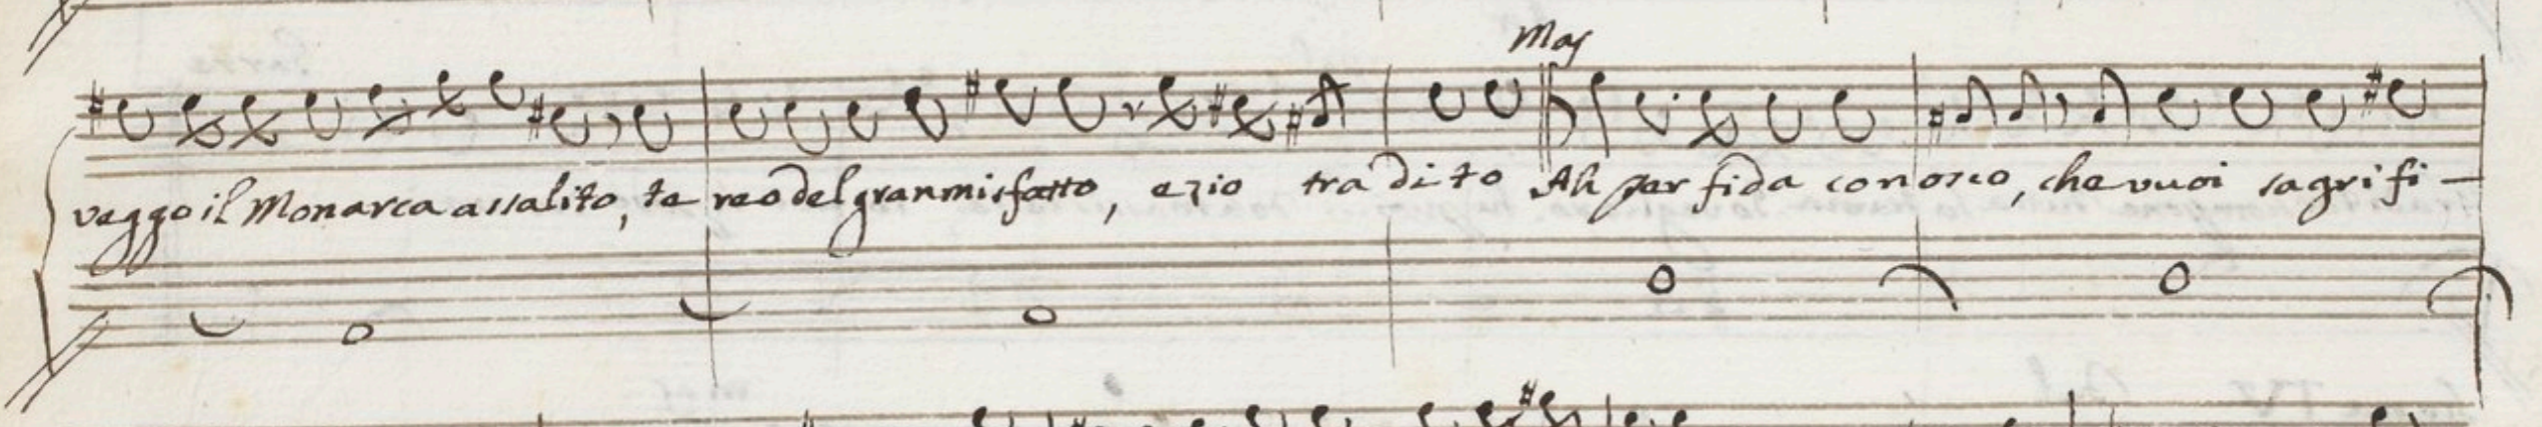 Mas
veggo il Monarca assalito, te reo del gran misfatto, ezio tradito Ah perfida conosco, che vuoi sagrifi-